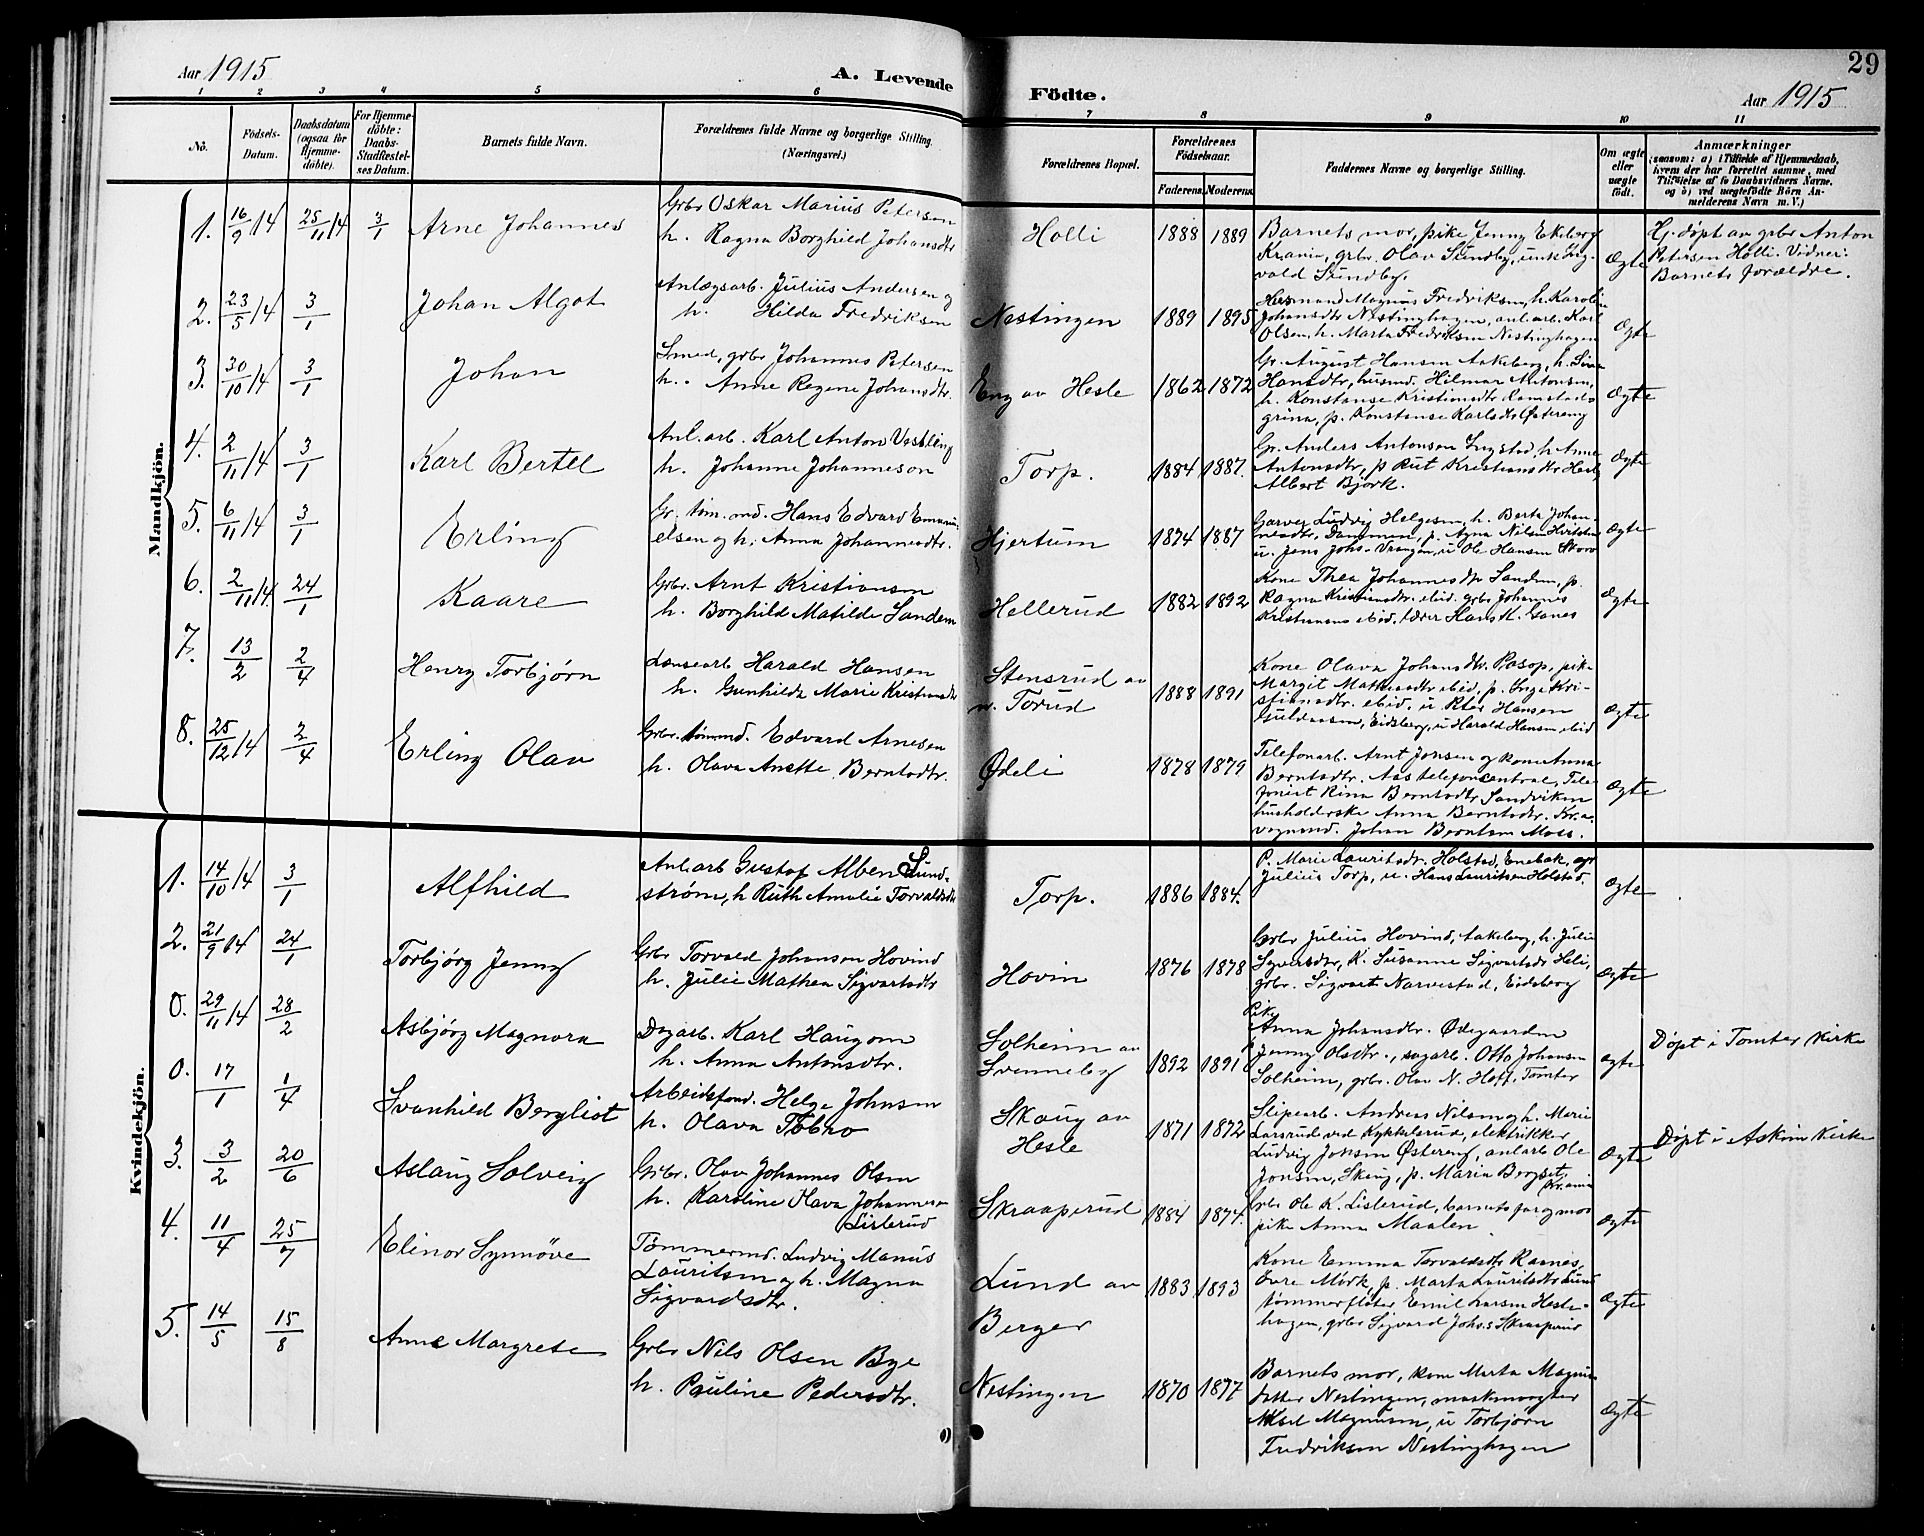 Aar 1915
A. Levende
Födte.
Aar 1915
29
1 2 3 4 5 6 7 8 9 10 11
No.
Födsels-
Datum.
Daabsdatum
(ogsaa for
Hjemme-
döbte).
For Hjemme-
döbte:
Daabs-
Stadfæstel-
ses Datum.
Barnets fulde Navn.
Forældrenes fulde Navne og borgerlige Stilling.
(Næringsvei.)
Forældrenes Bopæl.
Forældrenes
Födselsaar.
Faderens.
Moderens.
Faddernes Navne og borgerlige Stilling.
Om ægte
eller
uægte
født.
Anmærkninger
(saasom: a) i Tilfælde af Hjemmedaab,
hvem der har forrettet samme, med
Tilføielse af to Daabsvidners Navne,
og b) ved uægtefödte Börn An-
melderens Navn m. V.)
Mandkjön.
1. 16/9 14 25/11 14 3/1 Arne Johannes
Grbr Oskar Marius Petersen
h. Ragna Borghild Johansdtr
Holli 1888 1889
Barnets mor, pike Jenny Ekeberg
Krania, grbr. Olav Sundby, unk Ing-
vald Sundby.
Ægte
Hj. døpt av grbr Anton
Petersen Holli. Vidner:
Barnets forældre.
2. 23/5 14 3/1 Johan Algot
Anlægsarb. Julius Andersen og
h. Hilda Fredriksen
Nestingen 1889 1895
Husmand Magnus Fredriksen, h. Karoline
Johansdtr Nestinghagen, anl.arb. Karl
Olsen, h. Marta Fredriksen Nestinghagen
Ægte
3. 30/10 14 3/1 Johan
Smed, grbr Johannes Petersen
h. Anne Regene Johansdtr.
Eng av Hesle 1862 1872
Gr. August Hansen Aakeberg, h. Sina
Hansdtr, husmd. Hilmar Antonsen,
h. Konstanse Kristiansdtr Ramstads
grina, p. Konstanse Karlsdtr Østereng
Ægte
4. 2/11 14 3/1 Karl Bertel
Anl.arb. Karl Anton Vestling
h. Johanne Johanneson
Torp. 1884 1887.
Gr. Anders Antonsen Ingstad, h. Anne
Antonsdtr, p. Rut Kristiansdtr Hesle,
Albert Bjørk.
Ægte
5. 6/11 14 3/1 Erling
Gr. tøm. md. Hans Edvard Emanu-
elsen og h. Anna Johannesdtr.
Hjertum 1874 1887
Garver Ludvig Helgesen, h. Berta Johan-
nesdtr, Dammen, p. Agna Nilsen
u. Jens Johs. Vrangen, u. Ole Hansen
Ægte
6. 2/11 14. 24/1 Kaare
Grbr. Arnt Kristiansen
h. Borghild Matilde Sandem
Hellerud 1882 1892
Kone Thea Johannesdtr Sandem, p.
Ragna Kristiansdtr. ibid. grbr Johannes
Kristiansens ibid. lærer Hans K. Sanes
Ægte
7. 13/2 2/4 Henry Torbjørn
Lænsearb Harald Hansen
h. Gunhilda Marie Kristiansdtr
Stensrud av
n. Torud 1888 1891
Kone Olava Johansdtr. Pasop, pik-
Margit Mathiasdtr ibid, p. Inga Kri-
stiansdtr. ibid. u Peter Hansen
Guldaasen, Eidsberg, u Harald Hansen ibid
Ægte
8. 25/12 14 2/4 Erling Olav
Grbr. tømmd. Edvard Arnesen
h. Olava Anette Berntsdtr.
Ødeli 1878 1879
Telefonarb. Arnt Jonsen og kone Anna
Berntsdtr. Aas telefoncentral, Tele-
fonist Rina Berntsdtr Sandviken
husholderske Anna Berntsdtr. Kr.a.
vognmd. Johan Berntsen Moss.
Ægte
Kvindekjön.
1. 14/10 14 3/1 Alfhild
Anl.arb Gustaf Alben Lund-
strøm, h Ruth Amalie Torvaldsdtr
Torp. 1886 1884.
P. Marie Lauritsdr. Holstad, Enebak, og
Julius Torp, u. Hans Lauritsen Holstad.
Ægte
2. 21/9 14 24/1 Torbjørg Jenny
Grbr Torvald Johansen Hovind
h. Julie Mathea Sigvartsdtr
Hovin 1876 1878
Grbr Julius Hovind, Aakeberg, h. Julie
Syversdtr, K. Susanne Sigvartsdr Heli,
grbr. Sigvart Narvestad, Eidsberg
Ægte
0. 29/11 14 28/2 Asbjørg Magnora
Dagarb. Karl Haugom
h. Anna Antonsdtr.
Solheim av
Svenneby 1892 1891
Pike
Anna Johansdtr. Ødegaarden
Jenny Olsdtr., sagarb. Otto Johansen
Solheim, grbr. Olav N. Hoff, Tomter
Ægte
Døpt i Tomter Kirke
0. 17/1 1/4 Svanhild Bergliot
Arbeidsfond. Helge Johnsen
h. Olava Tobro
Skaug av
Hesle 1871 1872
Slipearb. Andreas Nilsen og h. Marie
Larsrud ved Kykkelsrud, elektriker
Ludvig Jonsen Østereng, anlarb Ole
Jonsen, Skaug, p. Maria Bergset,
Kr.ania
Ægte
Døpt i Askim Kirke
3. 3/2 20/6 Aslaug Solveig
Grbr. Olav Johannes Olsen
h. Karoline Hava Johannesen
Lislerud
Skraaperud 1884 1874.
Grbr Ole K. Lislerud, barnets far og mor
pike Anna Maalen
Ægte
4. 11/4 25/7 Elinor Synnøve
Tømmermd. Ludvig Manus
Lauritsen og h. Magna
Sigvardsdtr.
Lund av
Berger 1883 1893
Kone Emma Torvaldsdtr Ramnes,
Øvre Mørk, p. Marta Lauritsdtr Lund
tømmerfløter Emil Larsen Hesle-
hagen, grbr Sigvard Johs. Skraaperud
Ægte
5. 14/5 15/8 Anne Margrete
Grbr Nils Olsen Bye
h. Pauline Pedersdtr.
Nestingen 1870 1877
Barnets mor, kone Marta Magnus-
datter Nestingen, maskmongter
Aksel Magnusen, u Torbjørn
Fredriksen Nestinghagen
Ægte